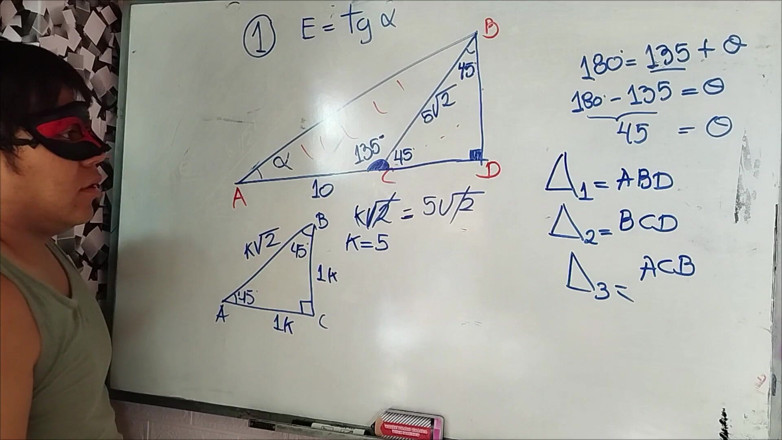 1 E = tg α
B
45
5√2
α
135°
45
A
10
C
D
180 = 135 + θ
180 - 135 = θ
45 = θ
Δ1 = ABD
Δ2 = BCD
Δ3 = ACB
K√2 = 5√2
K = 5
B
K√2
45
1K
45
A
1K
C